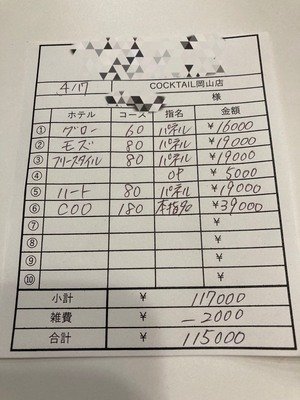 4/17 COCKTAIL岡山店
様
ホテル コース 指名 金額
① グロー 60 パネル ¥16000
② モズ 80 パネル ¥19000
③ フリースタイル 80 パネル ¥19000
④ OP ¥ 5000
⑤ ハート 80 パネル ¥19000
⑥ COO 180 本指名 ¥39000
⑦ ¥
⑧ ¥
⑨ ¥
⑩ ¥
小計 ¥ 117000
雑費 ¥ -2000
合計 ¥ 115000